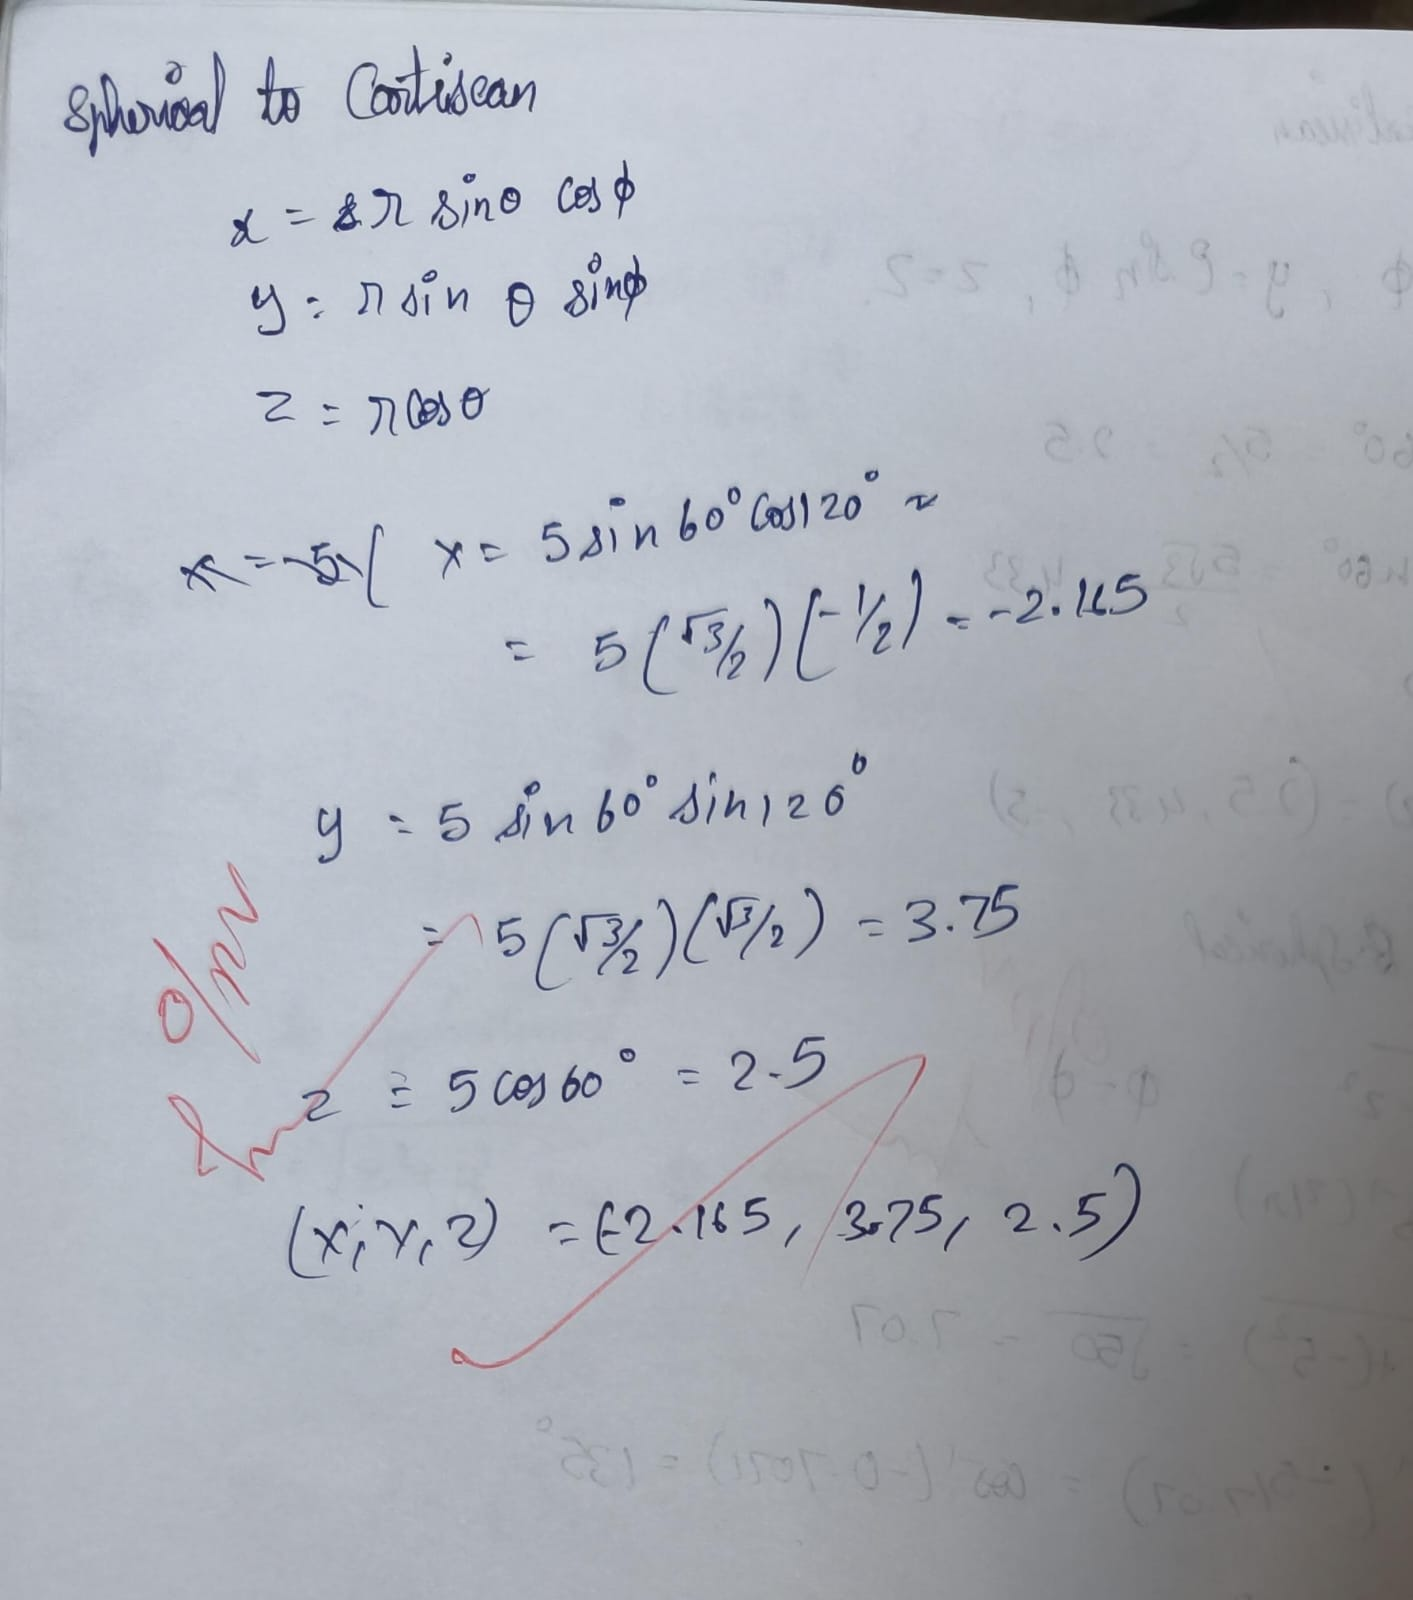 Spherical to Cartisean
x = r sinθ cosϕ
y = r sin θ sinϕ
z = r cosθ
x = 5 sin 60° cos120° =
= 5 (√3/2) (-1/2) = -2.165
y = 5 sin 60° sin 120°
= 5 (√3/2) (√3/2) = 3.75
z = 5 cos 60° = 2.5
(x, y, z) = (-2.165, 3.75, 2.5)